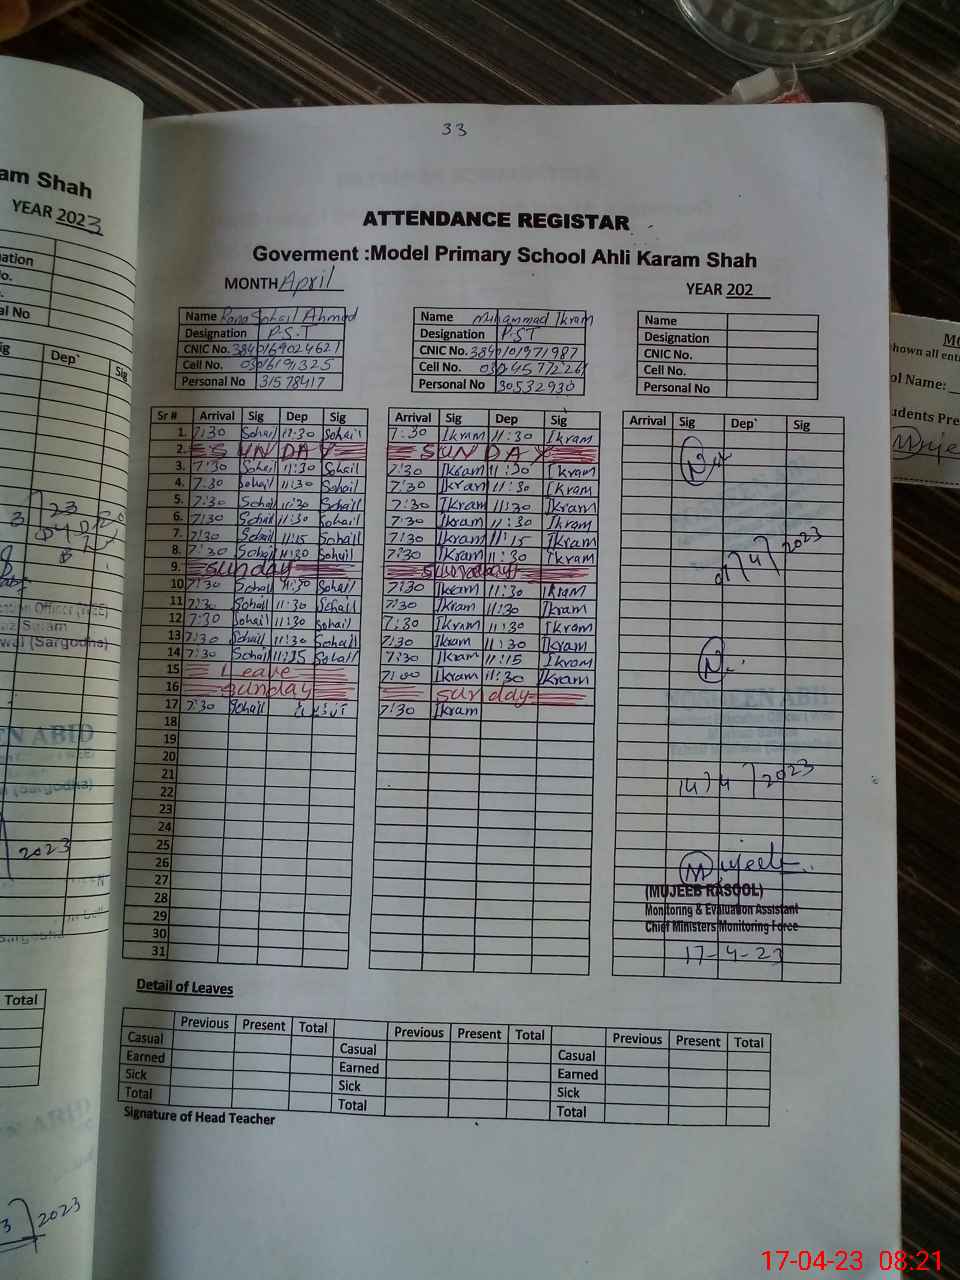 33
am Shah
YEAR 2023
ATTENDANCE REGISTAR
Goverment :Model Primary School Ahli Karam Shah
MONTH April
YEAR 202
Name Rana Sohail Ahmad
Designation P.S.T
CNIC No. 3840169024621
Cell No.
Personal No 31578417
Name Muhammad Ikram
Designation P.ST
CNIC No.
Cell No.
Personal No 30532930
Name
Designation
CNIC No.
Cell No.
Personal No
Sr # Arrival Sig Dep Sig Arrival Sig Dep Sig Arrival Sig Dep` Sig
1. 7:30 Sohail 11:30 Sohail 7:30 Ikram 11:30 Ikram
2. SUNDAY SUNDAY
3. 7:30 Sohail 11:30 Sohail 7:30 Ikram 11:30 Ikram
4. 7:30 Sohail 11:30 Sohail 7:30 Ikram 11:30 Ikram
5. 7:30 Sohail 11:30 Sohail 7:30 Ikram 11:30 Ikram
6. 7:30 Sohail 11:30 Sohail 7:30 Ikram 11:30 Ikram
7. 7:30 Sohail 11:15 Sohail 7:30 Ikram 11:15 Ikram
8. 7:30 Sohail 11:30 Sohail 7:30 Ikram 11:30 Ikram
9. Sunday Sunday
10 7:30 Sohail 11:30 Sohail 7:30 Ikram 11:30 Ikram
11 7:30 Sohail 11:30 Sohail 7:30 Ikram 11:30 Ikram
12 7:30 Sohail 11:30 Sohail 7:30 Ikram 11:30 Ikram
13 7:30 Sohail 11:30 Sohail 7:30 Ikram 11:30 Ikram
14 7:30 Sohail 11:15 Sohail 7:30 Ikram 11:15 Ikram
15 Leave 7:00 Ikram 11:30 Ikram
16 Sunday Sunday
17 7:30 Sohail 7:30 Ikram
18
19
20
21
22
23
24
25
26
27
28
29
30
31
14/4/2023
Mujeeb
(MUJEEB RASOOL)
Monitoring & Evaluation Assistant
Chief Ministers Monitoring Force
17-4-23
Detail of Leaves
Previous Present Total Previous Present Total Previous Present Total
Casual Casual Casual
Earned Earned Earned
Sick Sick Sick
Total Total Total
Signature of Head Teacher
Dep`
Sig
2023
EN ABID
Total
2023
hown all ent
ol Name:
udents Pre
17-04-23 08:21